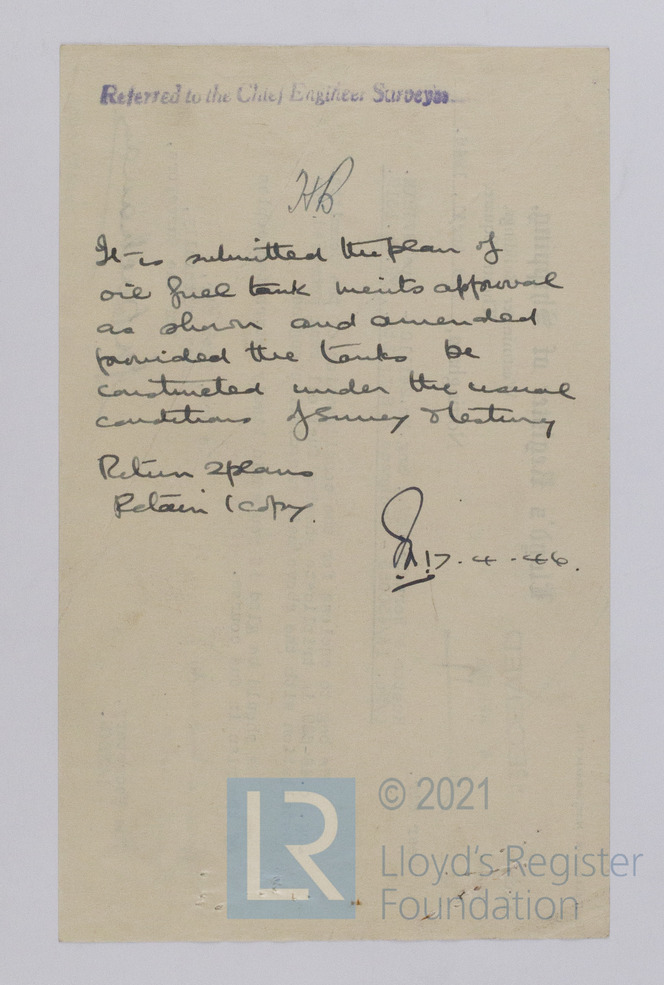 Referred to the Chief Engineer Surveyor
HB
It is submitted the plan of
oil fuel tank merits approval
as shown and amended
provided the tanks be
constructed under the usual
conditions of survey & testing
Return 2 plans
Retain 1 copy.
17.4.46.
LR
© 2021
Lloyd's Register
Foundation